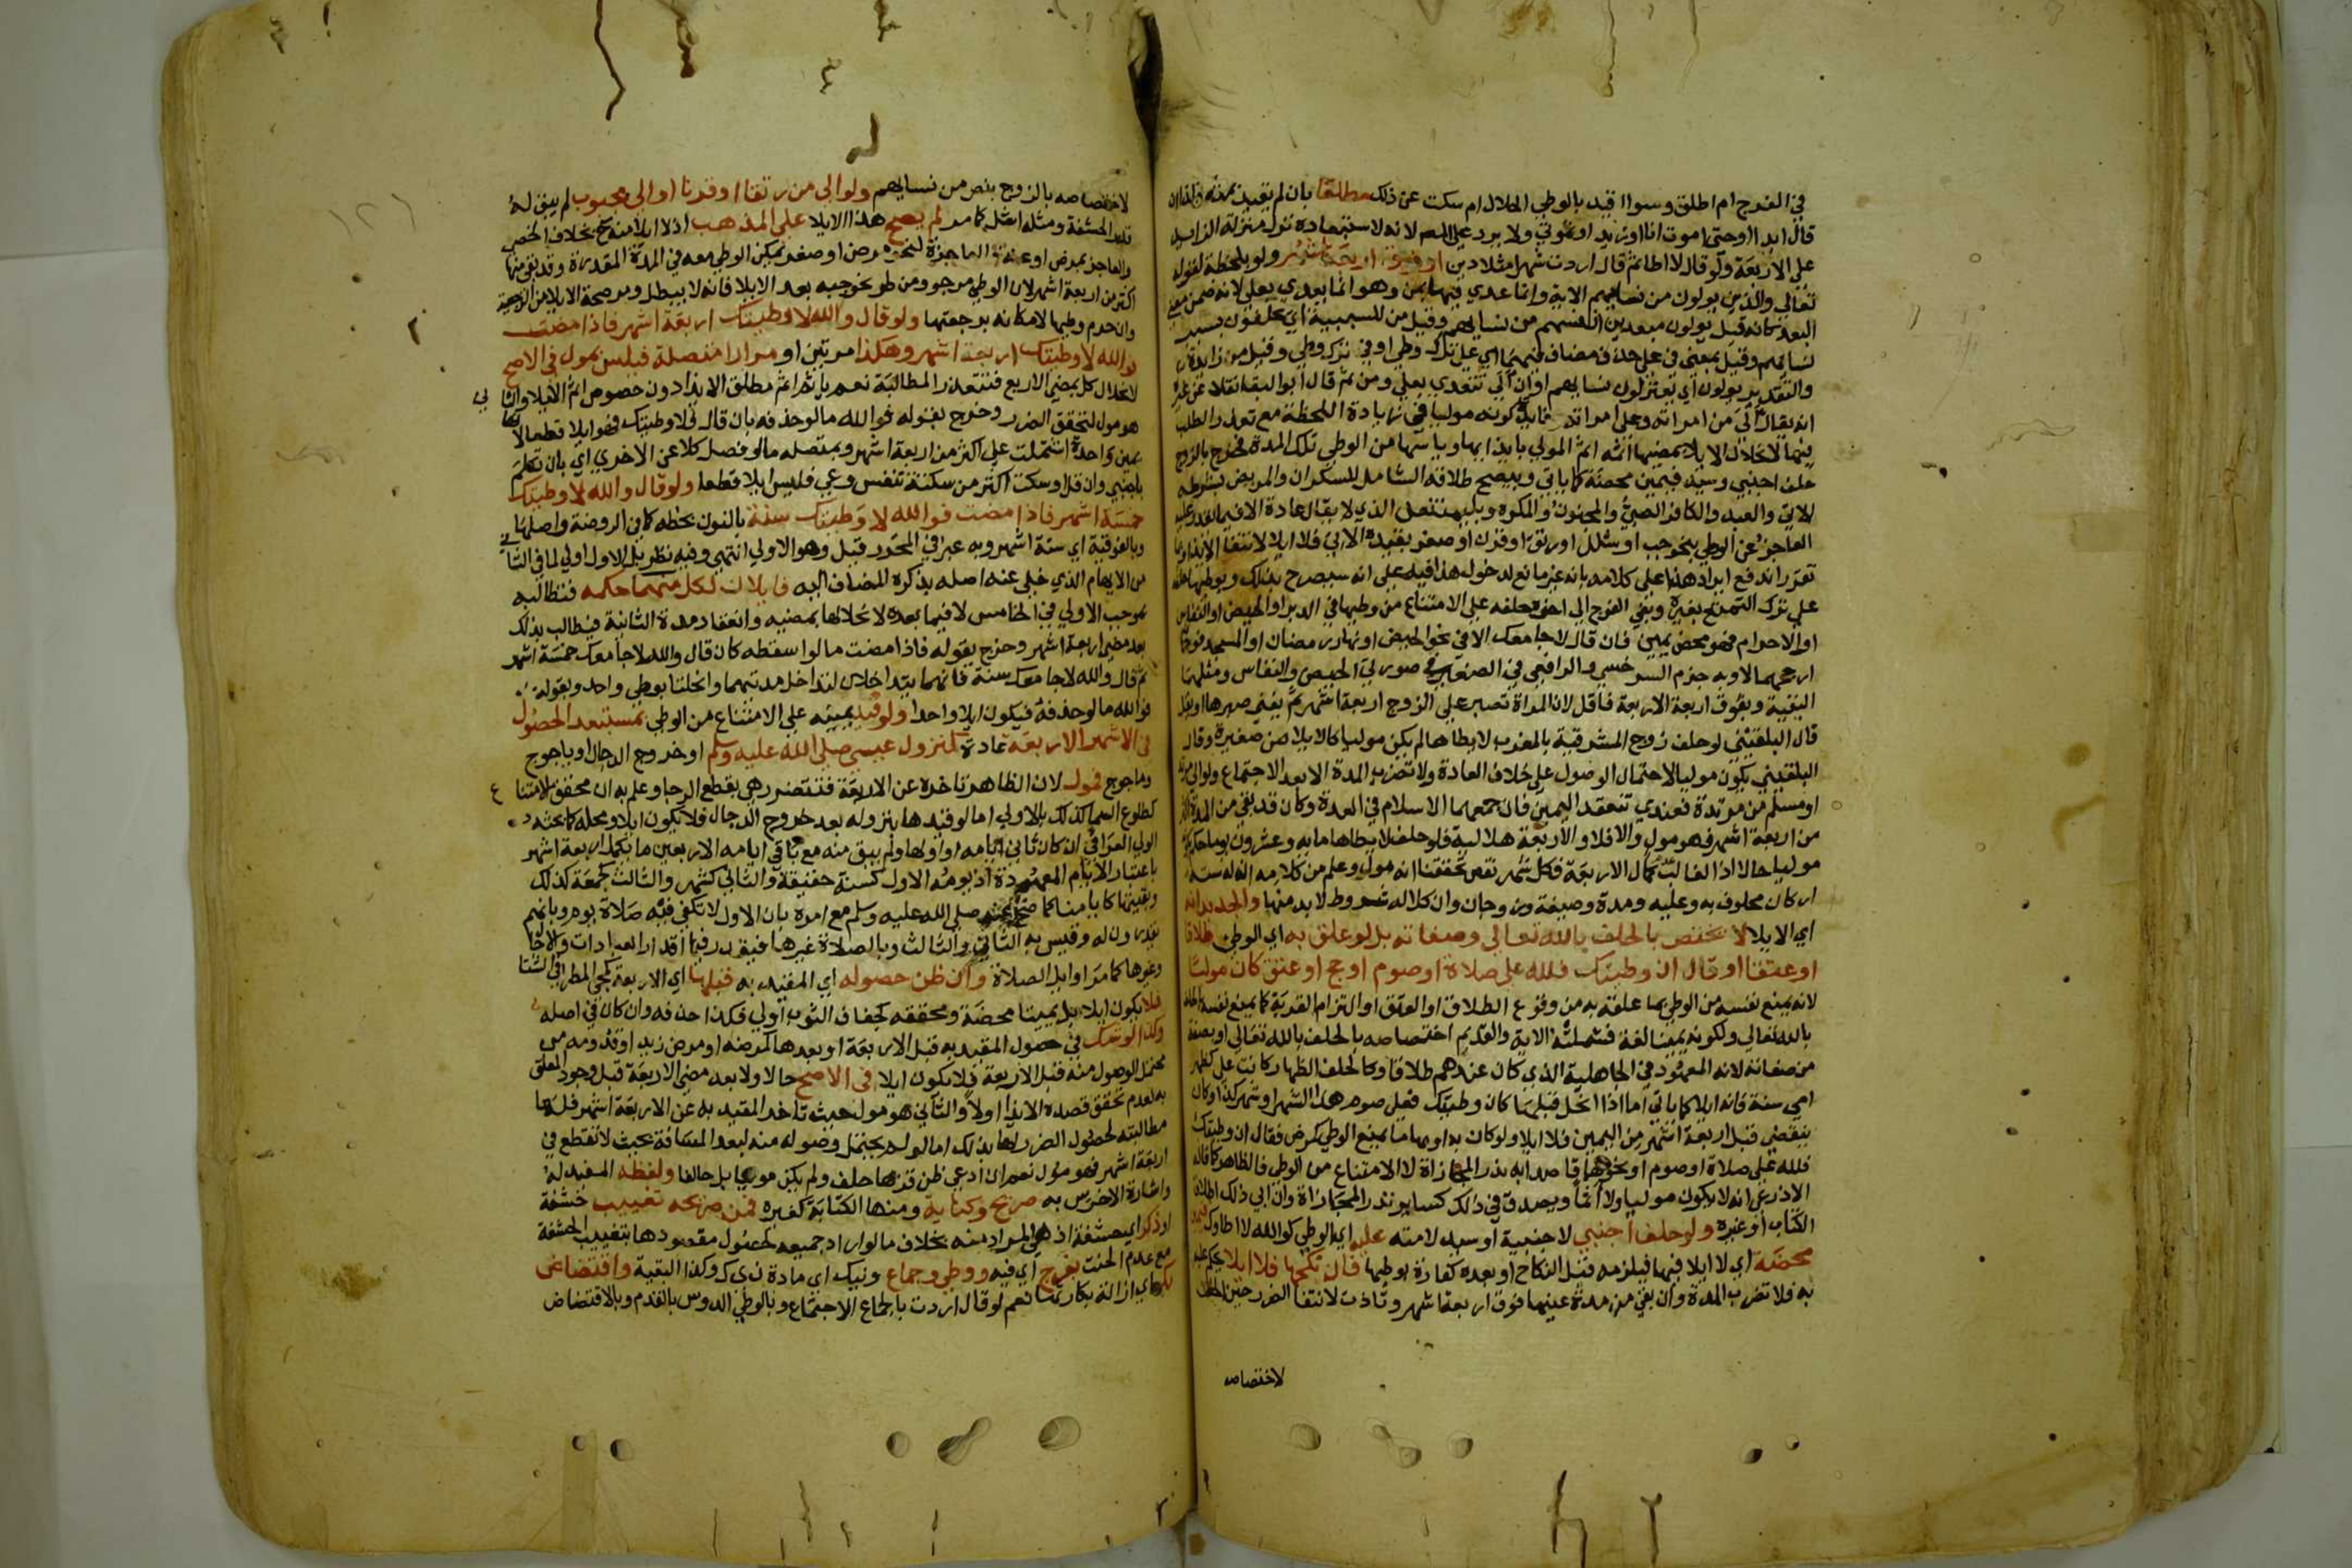 في الفرج ام اطلق وسوا اقيد بالوطي الحلال ام سكت عن ذلك مطلقا بان لم يقيد بمدة وكذا ان
قال ابدا او حتى اموت انا او زيد او تموتي ولا يرد عليه لانه لاستبعاده نزل منزلة الزايد
على الاربعة ولو قال لا اطا ثم قال اردت شهرا مثلا دين او فوق اربعة اشهر ولو بلحظة لقوله
تعالى والذين يولون من نسايهم الاية وانما عدي فيها بمن وهو انما يعدي بعلى لانه ضمن معنى
البعد كانه قيل يولون مبعدين انفسهم من نسايهم وقيل من للسببية اي يحلفون بسبب
نسايهم وقيل بمعنى في على حذف مضاف فيهما اي على ترك وطي او في ترك وطي وقيل من زايدة
والتقدير يولون اي يعتزلون نسايهم او ان الى تتعدي بعلى ومن ثم قال ابو البقا نقلا عن غيره
انه يقال الى من امراته وعلى امراته وفايدة كونه موليا في زيادة اللحظة مع تعذر الطلب
فيها لانحلال الايلا بمضيها اثمه اثم المولي بايذايها وياسها من الوطي تلك المدة فخرج بالزوج
حلف اجنبي وسيد فيمين محضة كما ياتي وبيصح طلاقه الشامل للسكران والمريض بشرطه
الاتي والعبد والكافر الصبي والمجنون والمكره وبليمتنعن الذي لا يقال عادة الا فيما يقدر عليه
العاجز عن الوطي بنحو جب او شلل او رتق او قرن او صغر بقيده الاتي فلا ايلا لانتفا الايذا وبما
تقرر اندفع ايراد هذا على كلامه بانه غير مانع لدخول هذا فيه على انه سيصرح بذلك وبوطيها حلفه
على ترك التمتع بغيره وبفي الفرج الى اخره حلفه على الامتناع من وطيها في الدبر او الحيض او النفاس
او الاحرام فهو محض يمين فان قال لا اجامعك الا في نحو الحيض او نهار رمضان او المسجد فوجهان
ارجحهما الاول وبه جزم السرخسي والرافعي في الصغير في صورتي الحيض والنفاس ومثلهما
البقية وبفوق اربعة الاربعة فاقل لان المراة تصبر على الزوج اربعة اشهر ثم يفنى صبرها او يقل
قال البلقيني لو حلف زوج المشرقية بالمغرب لا يطاها لم يكن موليا كالايلا من صغيرة وقال
البلقيني يكون موليا لاحتمال الوصول على خلاف العادة ولا تضرب المدة الا بعد الاجتماع ولو الى مرتد
او مسلم من مرتدة فعندي تنعقد اليمين فان جمعهما الاسلام في العدة وكان قد بقي من المدة اكثر
من اربعة اشهر فهو مول والا فلا والاربعة هلالية فلو حلف لا يطاها ماية وعشرون يوما حكم بكونه
موليا حالا اذا الغالب عدم كمال الاربعة فكل شهر نقص تحققنا انه مول وعلم من كلامه ان له ستة
اركان محلوف به وعليه ومدة وصيغة وزوجان وان كلا له شروط لا بد منها والجديد انه
اي الايلا لا يختص بالحلف بالله تعالى وصفاته بل لو علق به اي الوطي طلاقا
او عتقا او قال ان وطيتك فلله علي صلاة او صوم او حج او عتق كان موليا
لانه يمنع نفسه من الوطي بما علقه به من وقوع الطلاق او العتق او التزام القربة كما يمنع نفسه بالحلف
بالله تعالى ولكونه يمينا لغة فشملته الاية والقديم اختصاصه بالحلف بالله تعالى او بصفة
من صفاته لانه المعهود في الجاهلية الذي كان عندهم طلاقا وكالحلف الظهار كانت علي كظهر
امي سنة فانه ايلا كما ياتي اما اذا انحل قبلها كان وطيتك فعلي صوم هذا الشهر او شهر كذا وكان
ينقضي قبل اربعة اشهر من اليمين فلا ايلا ولو كان به او بها ما يمنع الوطي كمرض فقال ان وطيتك
فلله علي صلاة او صوم او نحوها قاصدا به نذر المجازاة لا الامتناع من الوطي فالظاهر كما قاله
الاذرعي انه لا يكون موليا ولا اثما ويصدق في ذلك كساير نذر المجازاة وان ابى ذلك اطلاق
الكتاب او غيره ولو حلف اجنبي لاجنبية او سيد لامته عليه اي الوطي كوالله لا اطاوك فيمين
محضة اي لا ايلا فيها فيلزمه قبل النكاح او بعده كفارة بوطيها فان نكحها فلا ايلا يحكم عليه
به فلا تضرب المدة وان بقي من مدة عينها فوق اربعة اشهر وتاذت لانتفا الضرر حين الحلف
لاختصاصه
لاختصاصه بالزوج بنص من نسايهم ولو الى من رتقا او قرنا او الى مجبوب لم يبق له
قدر الحشفة ومثله اشل كما مر لم يصح هذا الايلا على المذهب اذ لا ايذا منه بخلاف الخصي
والعاجز بمرض او عنة والعاجزة لنحو مرض او صغر يمكن الوطي معه في المدة المقدرة وقد بقي منها
اكثر من اربعة اشهر لان الوطي مرجو ومن طرو نحو جبه بعد الايلا فانه لا يبطل ومر صحة الايلا من الرجعية
وان حرم وطيها لامكانه برجعتها ولو قال والله لا وطيتك اربعة اشهر فاذا مضت
فوالله لا وطيتك اربعة اشهر وهكذا مرتين او مرارا متصلة فليس بمول في الاصح
لانحلال كل بمضي الاربع فتتعذر المطالبة نعم ياثم اثم مطلق الايذا دون خصوص اثم الايلا والثاني
هو مول لتحقق الضرر وخرج بقوله فوالله ما لو حذفه بان قال فلا وطيتك فهو ايلا قطعا لانها
يمين واحدة اشتملت على اكثر من اربعة اشهر وبمتصلة ما لو فصل كلا عن الاخرى اي بان تكلم
باجنبي وان قل او سكت اكثر من سكتة تنفس وعي فليس ايلا قطعا ولو قال والله لا وطيتك
خمسة اشهر فاذا مضت فوالله لا وطيتك سنة بالنون بخطه كما في الروضة واصلها
وبالفوقية اي ستة اشهر وبه عبر في المحرر قيل وهو الاولى انتهى وفيه نظر بل الاول اولى لما في الثاني
من الايهام الذي خلى عنه اصله بذكره المضاف اليه فايلان لكل منهما حكمه فتطالبه
بموجب الاولى في الخامس لا فيما بعده لانحلالها بمضيه وانعقاد مدة الثانية فيطالب بذلك
بعد مضي اربعة اشهر وخرج بقوله فاذا مضت ما لو اسقطه كان قال والله لا اجامعك خمسة اشهر
ثم قال والله لا اجامعك سنة فانهما يتداخلان لتداخل مدتيهما وانحلتا بوطي واحد وبقوله
فوالله ما لو حذفه فيكون ايلا واحدا ولو قيد يمينه على الامتناع من الوطي بمستبعد الحصول
في الاشهر الاربعة عادة كنزول عيسى صلى الله عليه وسلم او خروج الدجال او ياجوج
وماجوج فمول لان الظاهر تاخره عن الاربعة فتتضرر هي بقطع الرجا وعلم به ان محقق الامتناع
كطلوع السما كذلك بالاولى اما لو قيدها بنزوله بعد خروج الدجال فلا يكون ايلا ومحله كما بحثه
الولي العراقي ان كان ثاني ايامه او اولها ولم يبق منه مع باقي ايامه الاربعين ما يكمل اربعة اشهر
باعتبار الايام المعهودة اذ يومه الاول كسنة حقيقة والثاني كشهر والثالث كجمعة كذلك
وبقيتها كايامنا كما صح عنه صلى الله عليه وسلم مع امره بان الاول لا تكفي فيه صلاة يوم وبانهم
يقدرون له وقيس به الثاني والثالث وبالصلاة غيرها فيقدر فيها اقدار العبادات والاجال
وغيرها كما مر اوايل الصلاة وان ظن حصوله اي المقيد به قبلها اي الاربعة كمجي المطر في الشتا
فلا يكون ايلا بل يمينا محضة ومحققه كجفاف الثوب اولى فكذا حذفه وان كان في اصله
وكذا لو شك في حصول المقيد به قبل الاربعة او بعدها كمرضه او مرض زيد او قدومه من
محتمل الوصول منه قبل الاربعة فلا يكون ايلا في الاصح حالا ولا بعد مضي الاربعة قبل وجود المعلق
به لعدم تحقق قصده الايذا اولا والثاني هو مول حيث تاخر المقيد به عن الاربعة اشهر فلها
مطالبته لحصول الضرر لها بذلك اما لو لم يحتمل وصوله منه لبعد المسافة بحيث لا تقطع في
اربعة اشهر فهو مول نعم ان ادعى ظن قربها حلف ولم يكن موليا بل حالفا ولفظه المفيد له
واشارة الاخرس به صريح وكناية ومنها الكتابة كغيره فمن صريحه تغييب حشفة
او ذكر اي حشفة اذ هي المراد منه بخلاف ما لو اراد جميعه لحصول مقصودها بتغييب الحشفة
مع عدم الحنث بفرج اي فيه ووطي وجماع ونيك اي مادة ن ي ك وكذا البقية وافتضاض
بكر اي ازالة بكارتها نعم لو قال اردت بالجماع الاجتماع وبالوطي الدوس بالقدم وبالافتضاض